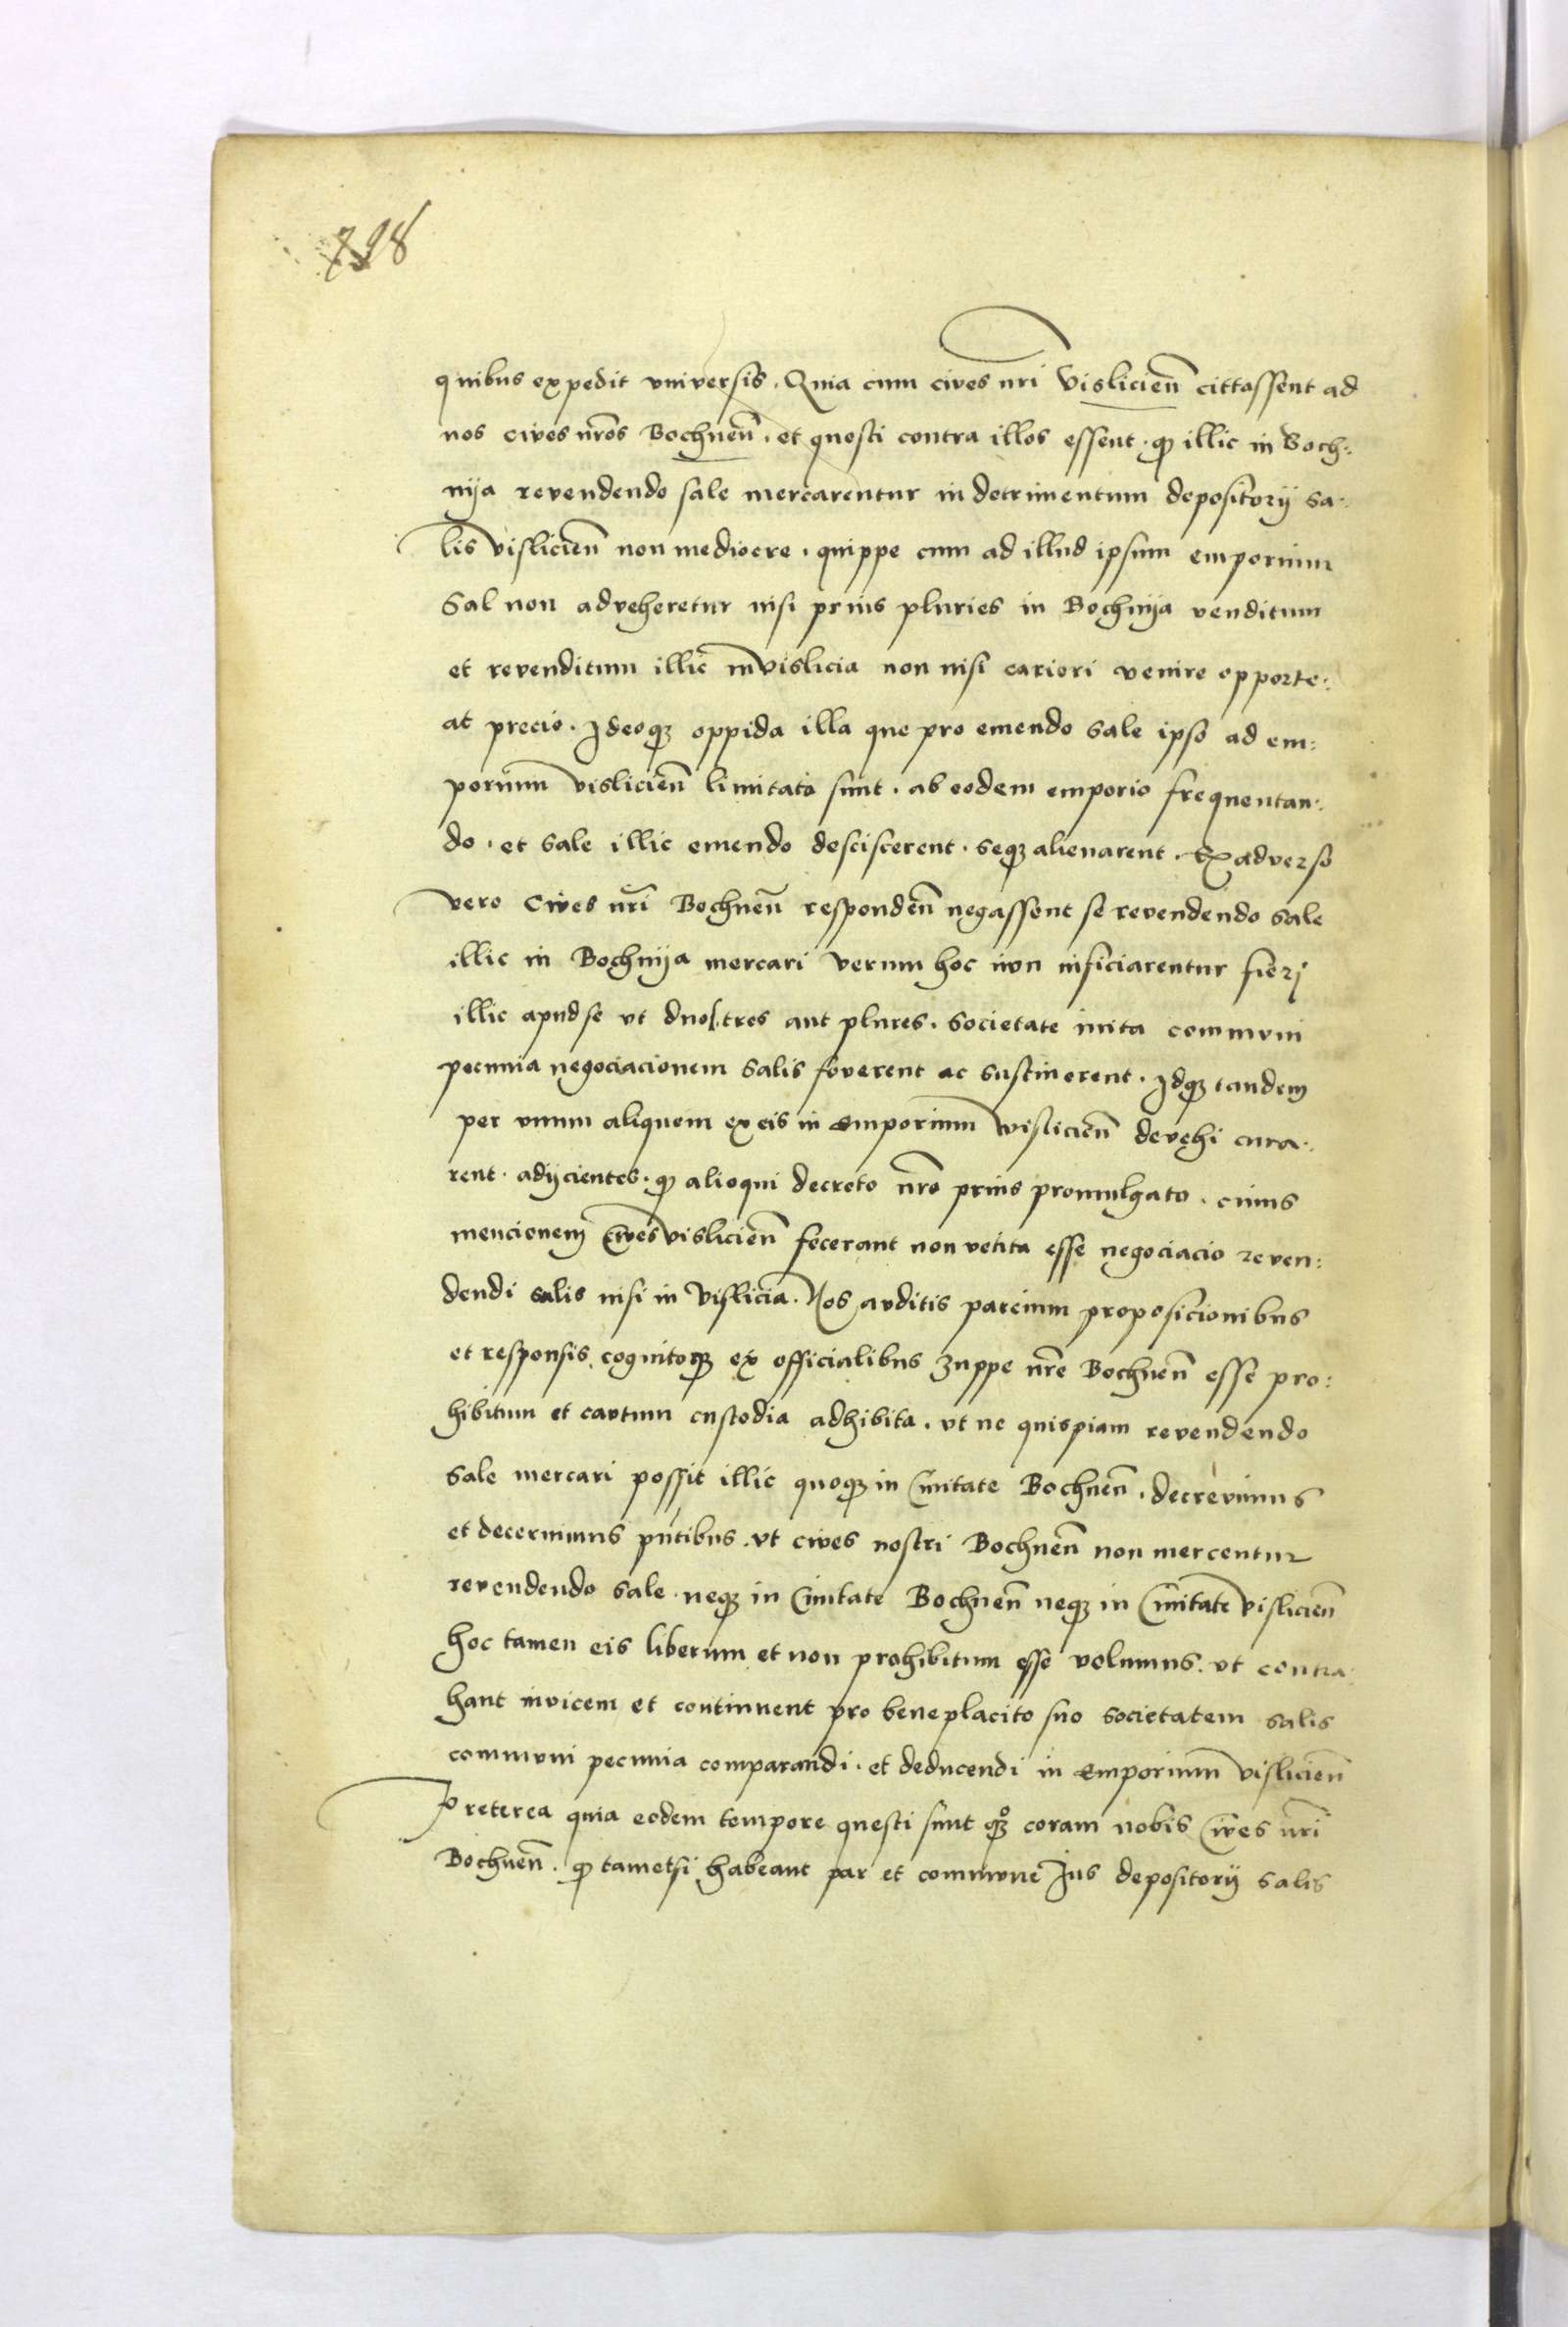 798
quibus expedit vniversis. Quia cum cives nri Vislicien̄ cittassent ad
nos cives nr̄os Bochnen̄. et questi contra illos essent. qꝫ illic in Boch:
nija revendendo sale mercarentur in detrimentum depositorij sa:
lis vislicien̄ non mediocre. quippe cum ad illud ipsum emporium
Sal non adveheretur nisi prius pluries in Bochnija venditum
et revenditum illic in vislicia non nisi cariori venire opporte:
at precio. Ideoqꝫ oppida illa que pro emendo sale ipso ad em:
porium vislicien̄ limitata sunt. ab eodem emporio frequentan:
do. et sale illic emendo desciscerent. seqꝫ alienarent. Ex adverso
vero Cives nr̄i Bochnen̄ responden̄ negassent se revendendo sale
illic in Bochnija mercari verum hoc non inficiarentur fieri
illic apud se vt duo, tres aut plures. societate inita communi
pecunia negociacionem salis foverent ac sustinerent. Idqꝫ tandem
per vnum aliquem ex eis in emporium vislicien̄ devehi cura:
rent. adijcientes. qꝫ alioqui decreto nr̄o prius promulgato. cuius
mencionem Cives vislicien̄ fecerant non vetita esse negociacio reven:
dendi salis nisi in vislicia. Nos auditis parcium proposicionibus
et responsis, cognitoqꝫ ex officialibus zuppe nr̄e Bochnen̄ esse pro:
hibitum et cavtum custodia adhibita. vt ne quispiam revendendo
sale mercari possit illic quoqꝫ in Civitate Bochnen̄. decrevimus
et decernimus pn̄tibus. vt cives nostri Bochnen̄ non mercentur
revendendo sale. neqꝫ in Civitate Bochnen̄ neqꝫ in Civitate vislicien̄
hoc tamen eis liberum et non prohibitum esse volumus. vt contra:
hant invicem et continuent pro beneplacito suo societatem salis
communi pecunia comparandi. et deducendi in emporium vislicien̄
Preterea quia eodem tempore questi sunt qꝫ° coram nobis Cives nr̄i
Bochnen̄. qꝫ tametsi habeant par et commune Ius depositorij salis